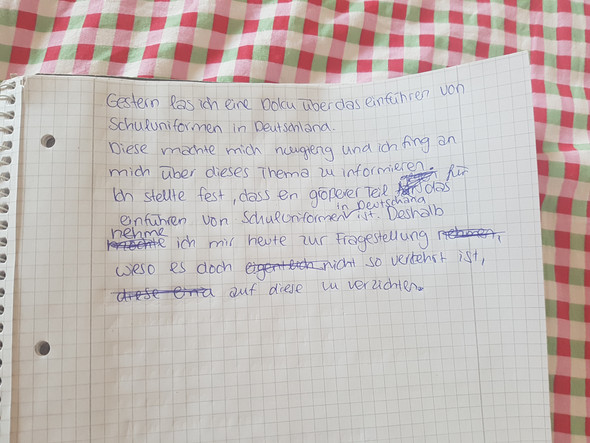 Gestern las ich eine Doku über das einführen von
Schuluniformen in Deutschland.
Diese machte mich neugierig und ich fing an
mich über dieses Thema zu informieren.
Ich stellte fest, dass en größerer Teil für das
einführen von Schuluniformen in Deutschland ist. Deshalb
nehme ich mir heute zur Fragestellung nehmen,
weso es doch eigentlich nicht so verkehrt ist,
diese auf diese zu verzichten.